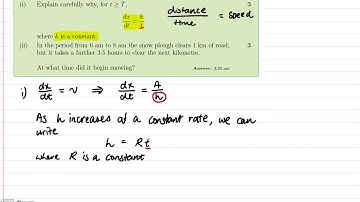 (i) Explain carefully why, for t ≥ T, 3
dx/dt = k/t
where k is a constant.
distance/time = speed
(ii) In the period from 6 am to 8 am the snow plough clears 1 km of road, 3
but it takes a further 3.5 hours to clear the next kilometre.
At what time did it begin snowing? Answer: 3:20 am
i) dx/dt = v ⇒ dx/dt = A/h
As h increases at a constant rate, we can
write
h = Rt
where R is a constant